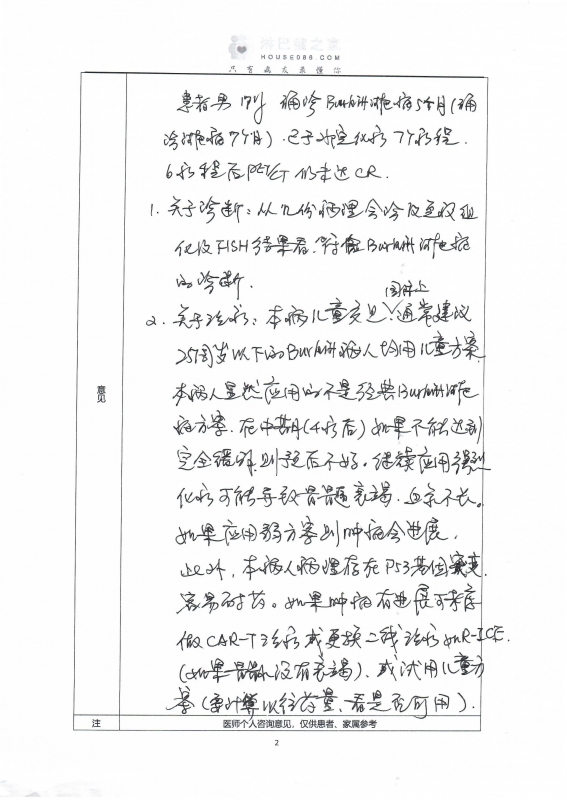 淋巴瘤之家
HOUSE086.COM
只有病友最懂你
患者男 17岁 确诊Burkitt淋巴瘤5个月(确
诊淋巴瘤7个月). 已予化疗7个疗程.
6疗程后PETCT仍未达CR.
1. 关于诊断: 从几份病理会诊及免疫组
化及FISH结果看. 符合Burkitt淋巴瘤
的诊断.
国际上
2. 关于治疗: 本病儿童多见. 通常建议
25周岁以下的Burkitt病人均用儿童方案.
本病人虽然应用的不是经典Burkitt淋巴
瘤方案. 在中期(4疗后)如果不能达到
完全缓解则预后不好。继续应用强烈
化疗可能导致骨髓衰竭, 血象不长。
如果应用弱方案则肿瘤会进展.
此外, 本病人病理存在P53基因突变.
容易耐药。如果肿瘤有进展可考虑
做CAR-T治疗或更换二线治疗如R-ICE.
(如果骨髓没有衰竭). 或试用儿童方
案(要计算以往药量、看是否可用).
意见
注
医师个人咨询意见,仅供患者、家属参考
2